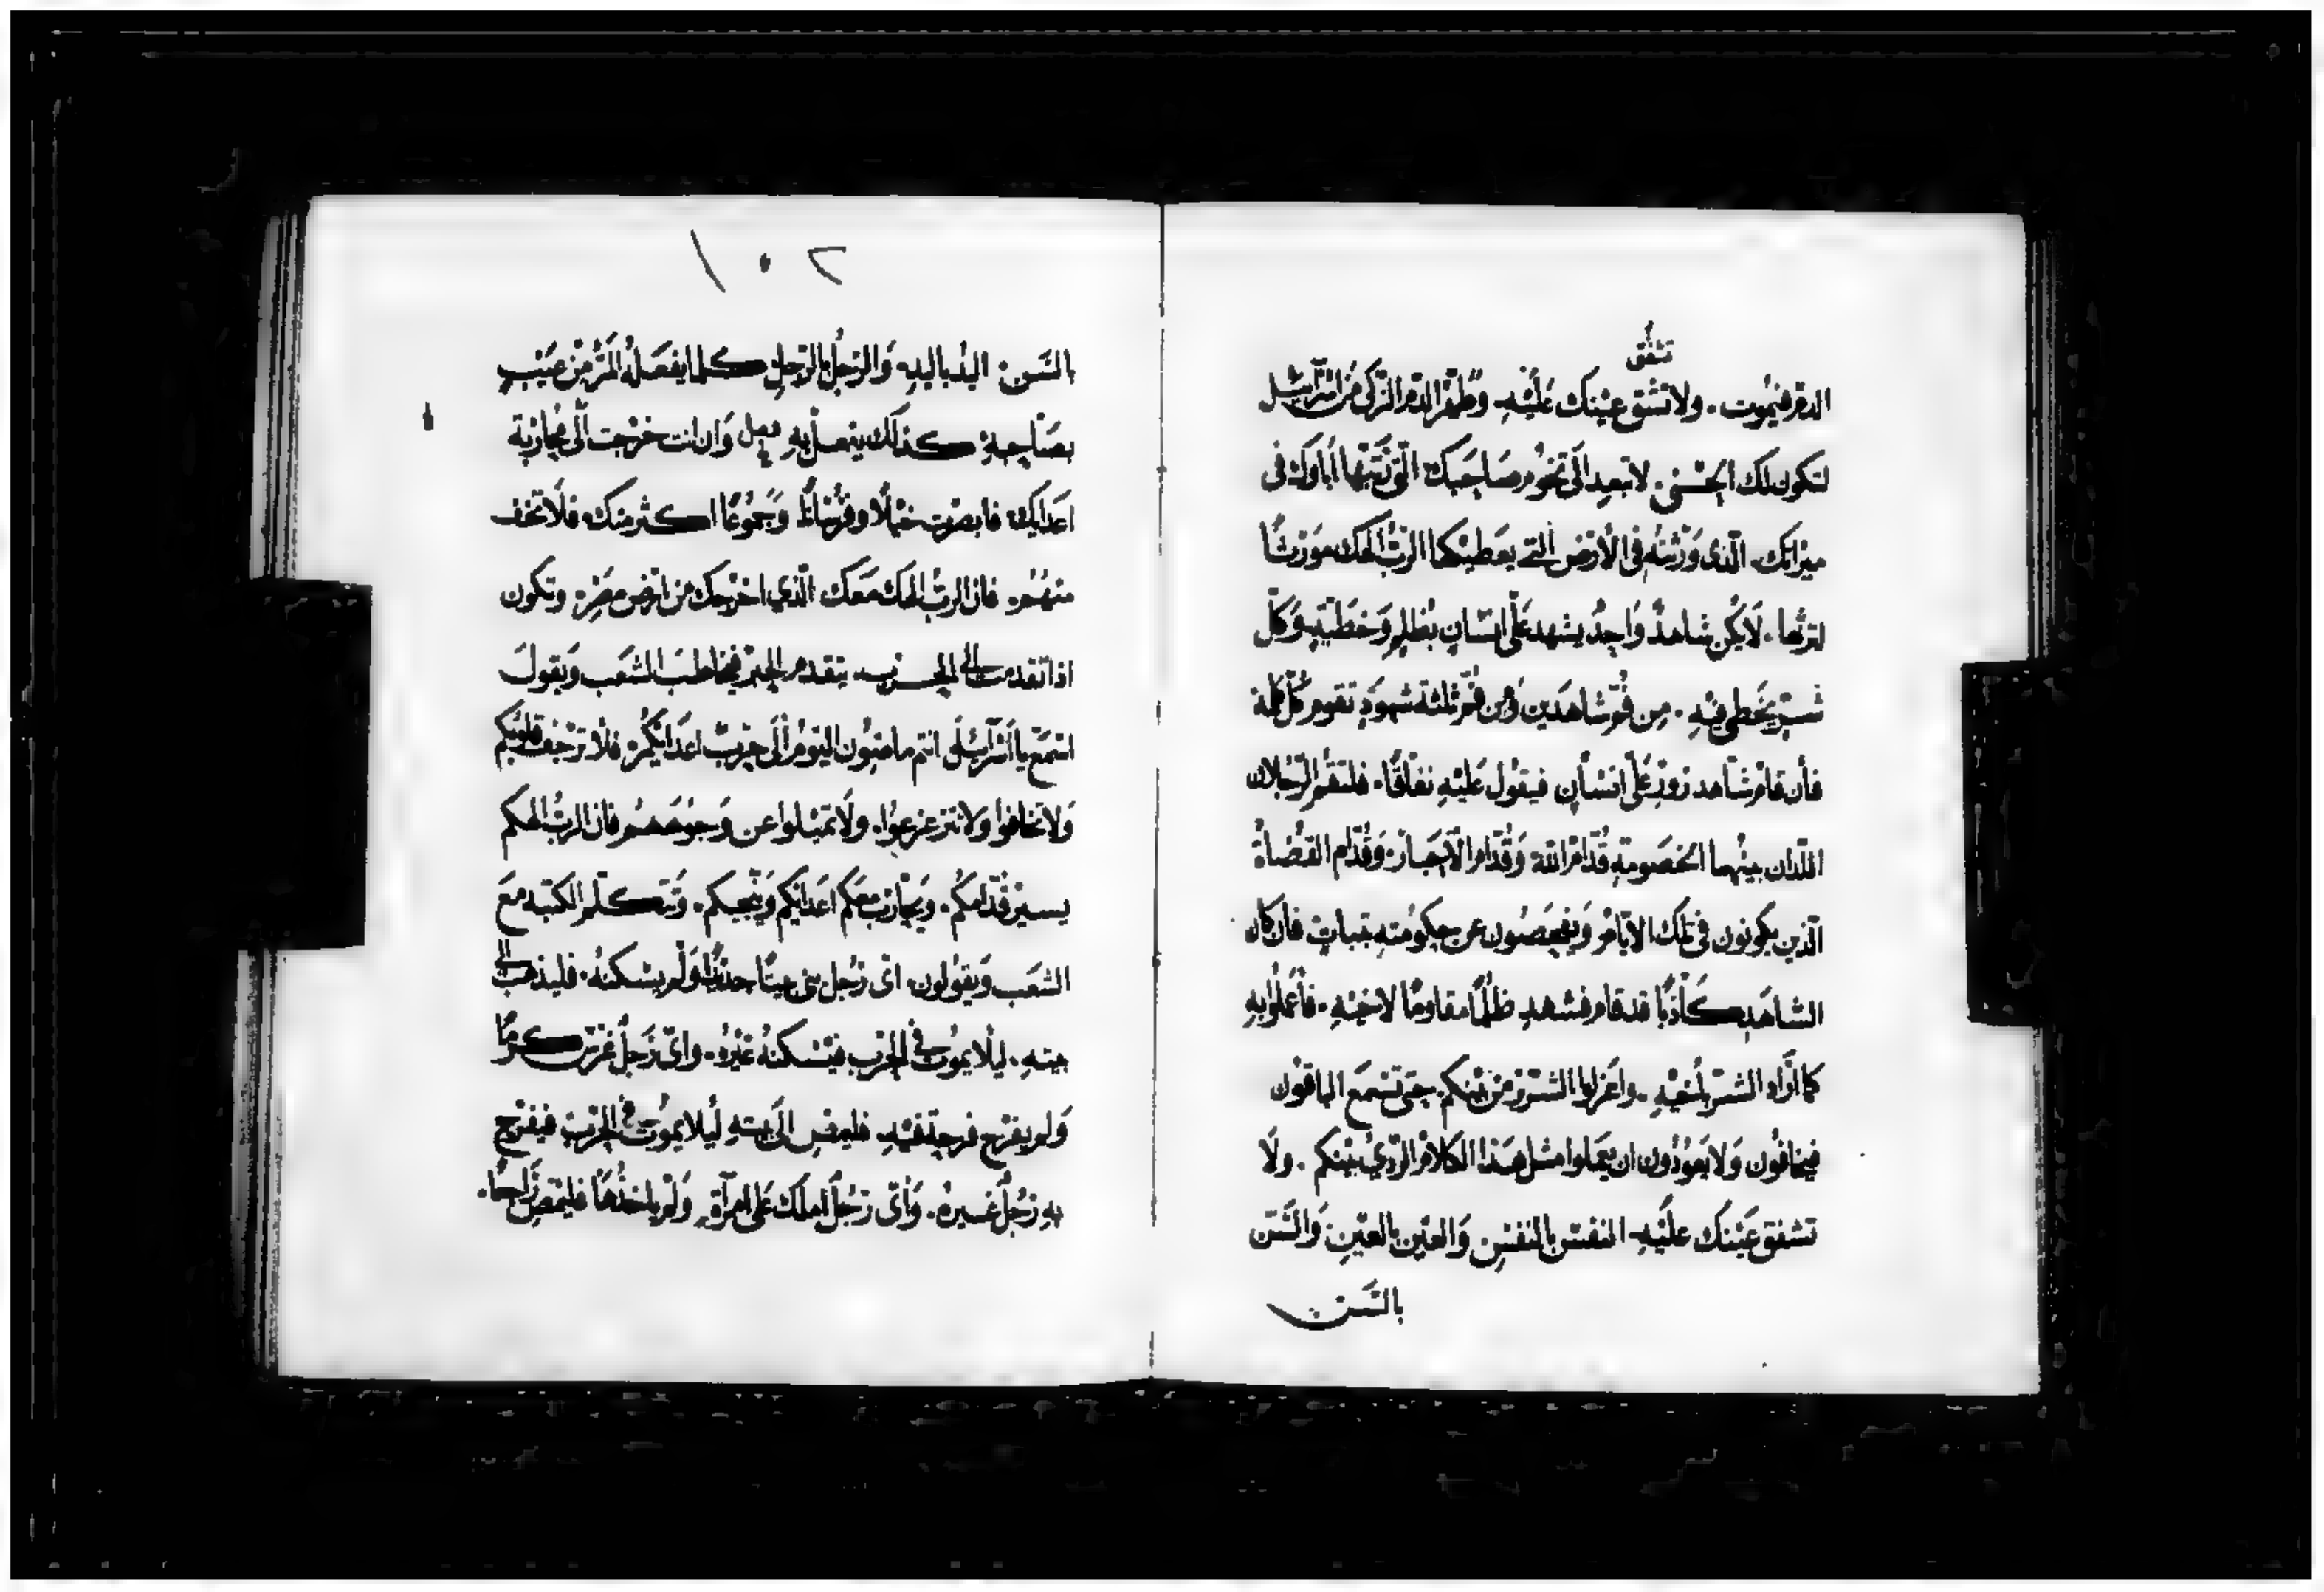 تشفق
الدم فيموت. ولا تشق عينك عليه. وطهر الدم الزكى من اسرائيل
لتكون لك الحسنى. لا تبعد الى تخوم صاحبك التى ثبتها اباوك فى
ميراثك. الذى ورثته فى الارض التى يعطيكها الرب الهك مورثا
لترثها. لا يكن شاهد واحد يشهد على انسان بظلم وخطية وكل
شر يخطى فيه. من فم شاهدين ومن فم ثلثة شهود تقوم كل كلمة
فأن قام شاهد زور على انسان فيقول عليه نفاقا. فلتقم الرجلان
اللذان بينهما الخصومة قدام الله وقدام الاحبار وقدام القضاة
الذين يكونون فى تلك الايام ويفحصون عن حكومته بثبات فان كان
الشاهد كاذبا قد قام فشهد ظلما مقاوما لاخيه. فأعملوا به
كما اراد الشر بأخيه. واعزلوا الشرير من بينكم. حتى تسمع الباقون
فيخافون ولا يعودون ان يعملوا مثل هذا الكلام الردي بينكم. ولا
تشفق عينك عليه النفس بالنفس والعين بالعين والسن
بالسن
١٠٢
بالسن. اليد باليد. والرجل بالرجل كلما يفعله المر من عيب
بصاحبه كذلك يفعل به وان انت خرجت الى محاربة
اعدايك. فابصرت خيلا وفرسانا وجموعا اكثر منك. فلا تخف
منهم. فان الرب الهك معك الذي اخرجك من ارض مصر. وتكون
اذا تقدمت الى الحرب. يتقدم الحبر فيخاطب الشعب ويقول
اسمع يا اسرائيل انتم ماضون اليوم الى حرب اعدايكم. فلا ترجف قلوبكم
ولا تخافوا ولا تتزعزعوا. ولا تميلوا عن وجوههم فان الرب الهكم
يسير قدامكم. ويحارب معكم اعدايكم وينجيكم. وتتكلم الكتبه مع
الشعب ويقولون. اى رجل بنى بيتا جديدا ولم يسكنه. فليذهب الى
بيته. ليلا يموت فى الحرب فيسكنه غيره. واى رجل غرس كرما
ولم يفرح فرحا فيه. فليمض الى بيته ليلا يموت فى الحرب فيفرح
به رجل غيره. واى رجل املك على امرآة ولم ياخذها فليمض راجعا.